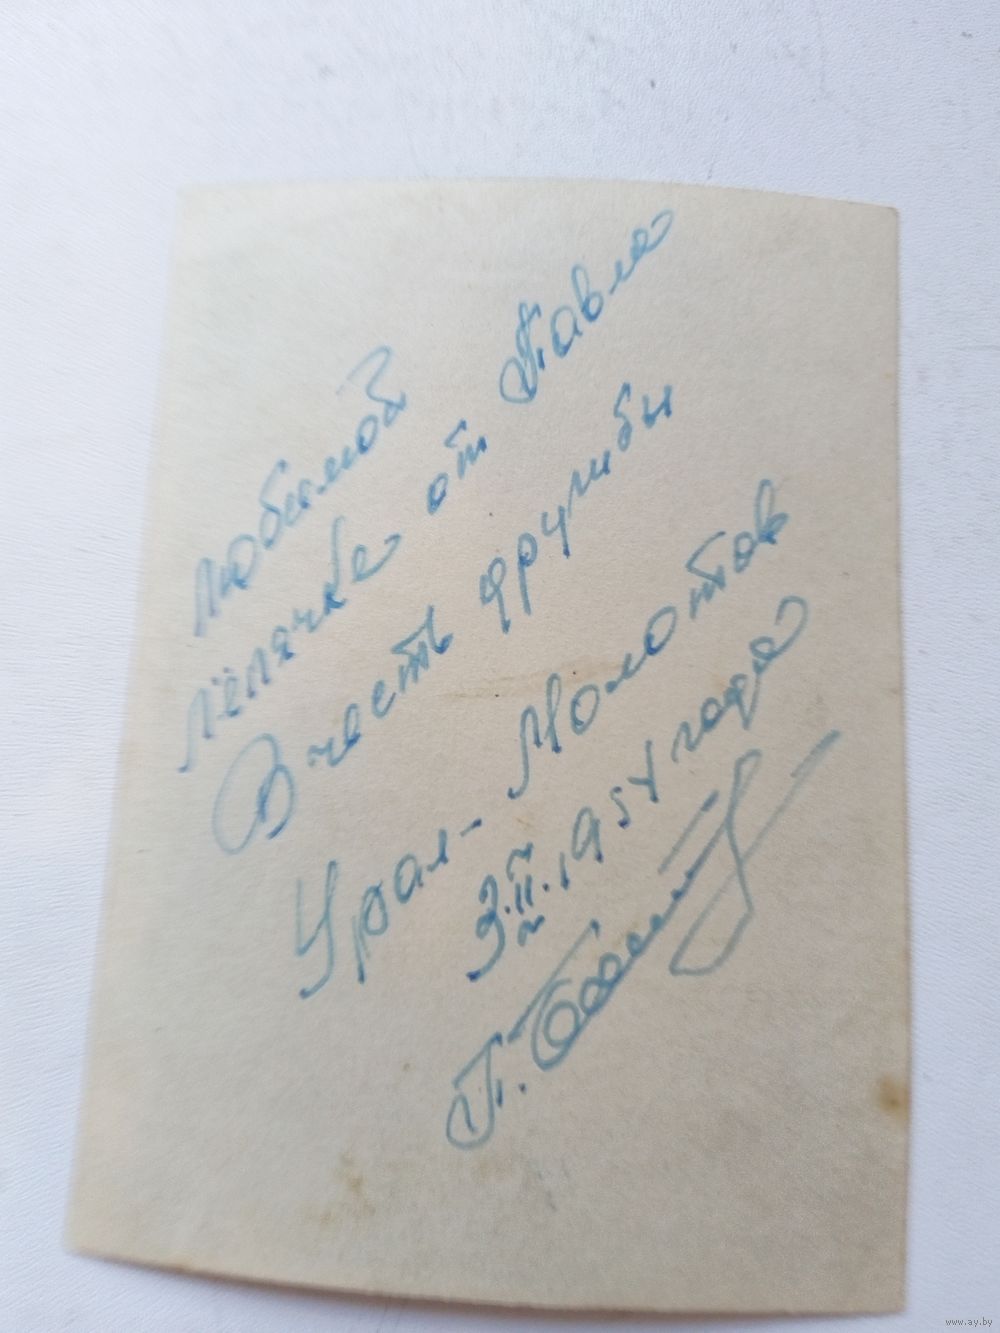 Любимой
Лёлячке от Павла
В честь дружбы
Урал- Молотов
3.II.1954 года
П.
www.ay.by